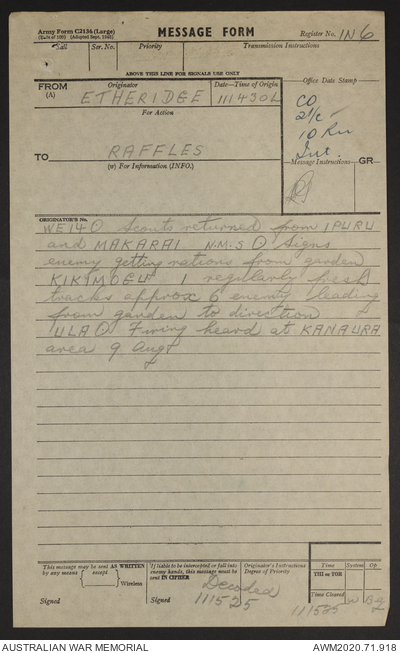 Army Form C2136 (Large)
MESSAGE FORM
Register No. IN6
Call Ser. No. Priority Transmission Instructions
ABOVE THIS LINE FOR SIGNALS USE ONLY
FROM Originator Date—Time of Origin Office Date Stamp
(A) ETHERIDGE 111430L
For Action
CO
2i/c
TO RAFFLES
Int.
(W) For Information (INFO.) Message Instructions GR
ORIGINATOR'S No.
WE140 Scouts returned from IPURU
and MAKARAI N.M.S O Signs
enemy getting rations from garden
1 regularly fresh
tracks approx 6 enemy leading
from garden to direction
ULAO Firing heard at KANAURA
area 9 Aug
This message may be sent AS WRITTEN
by any means except Wireless
If liable to be intercepted or fall into
enemy hands, this message must be
sent IN CIPHER
Originator's Instructions
Degree of Priority
Time System Op
THI or TOR
Time Cleared
Decoded
111525
111525
Signed Signed
AUSTRALIAN WAR MEMORIAL AWM2020.71.918